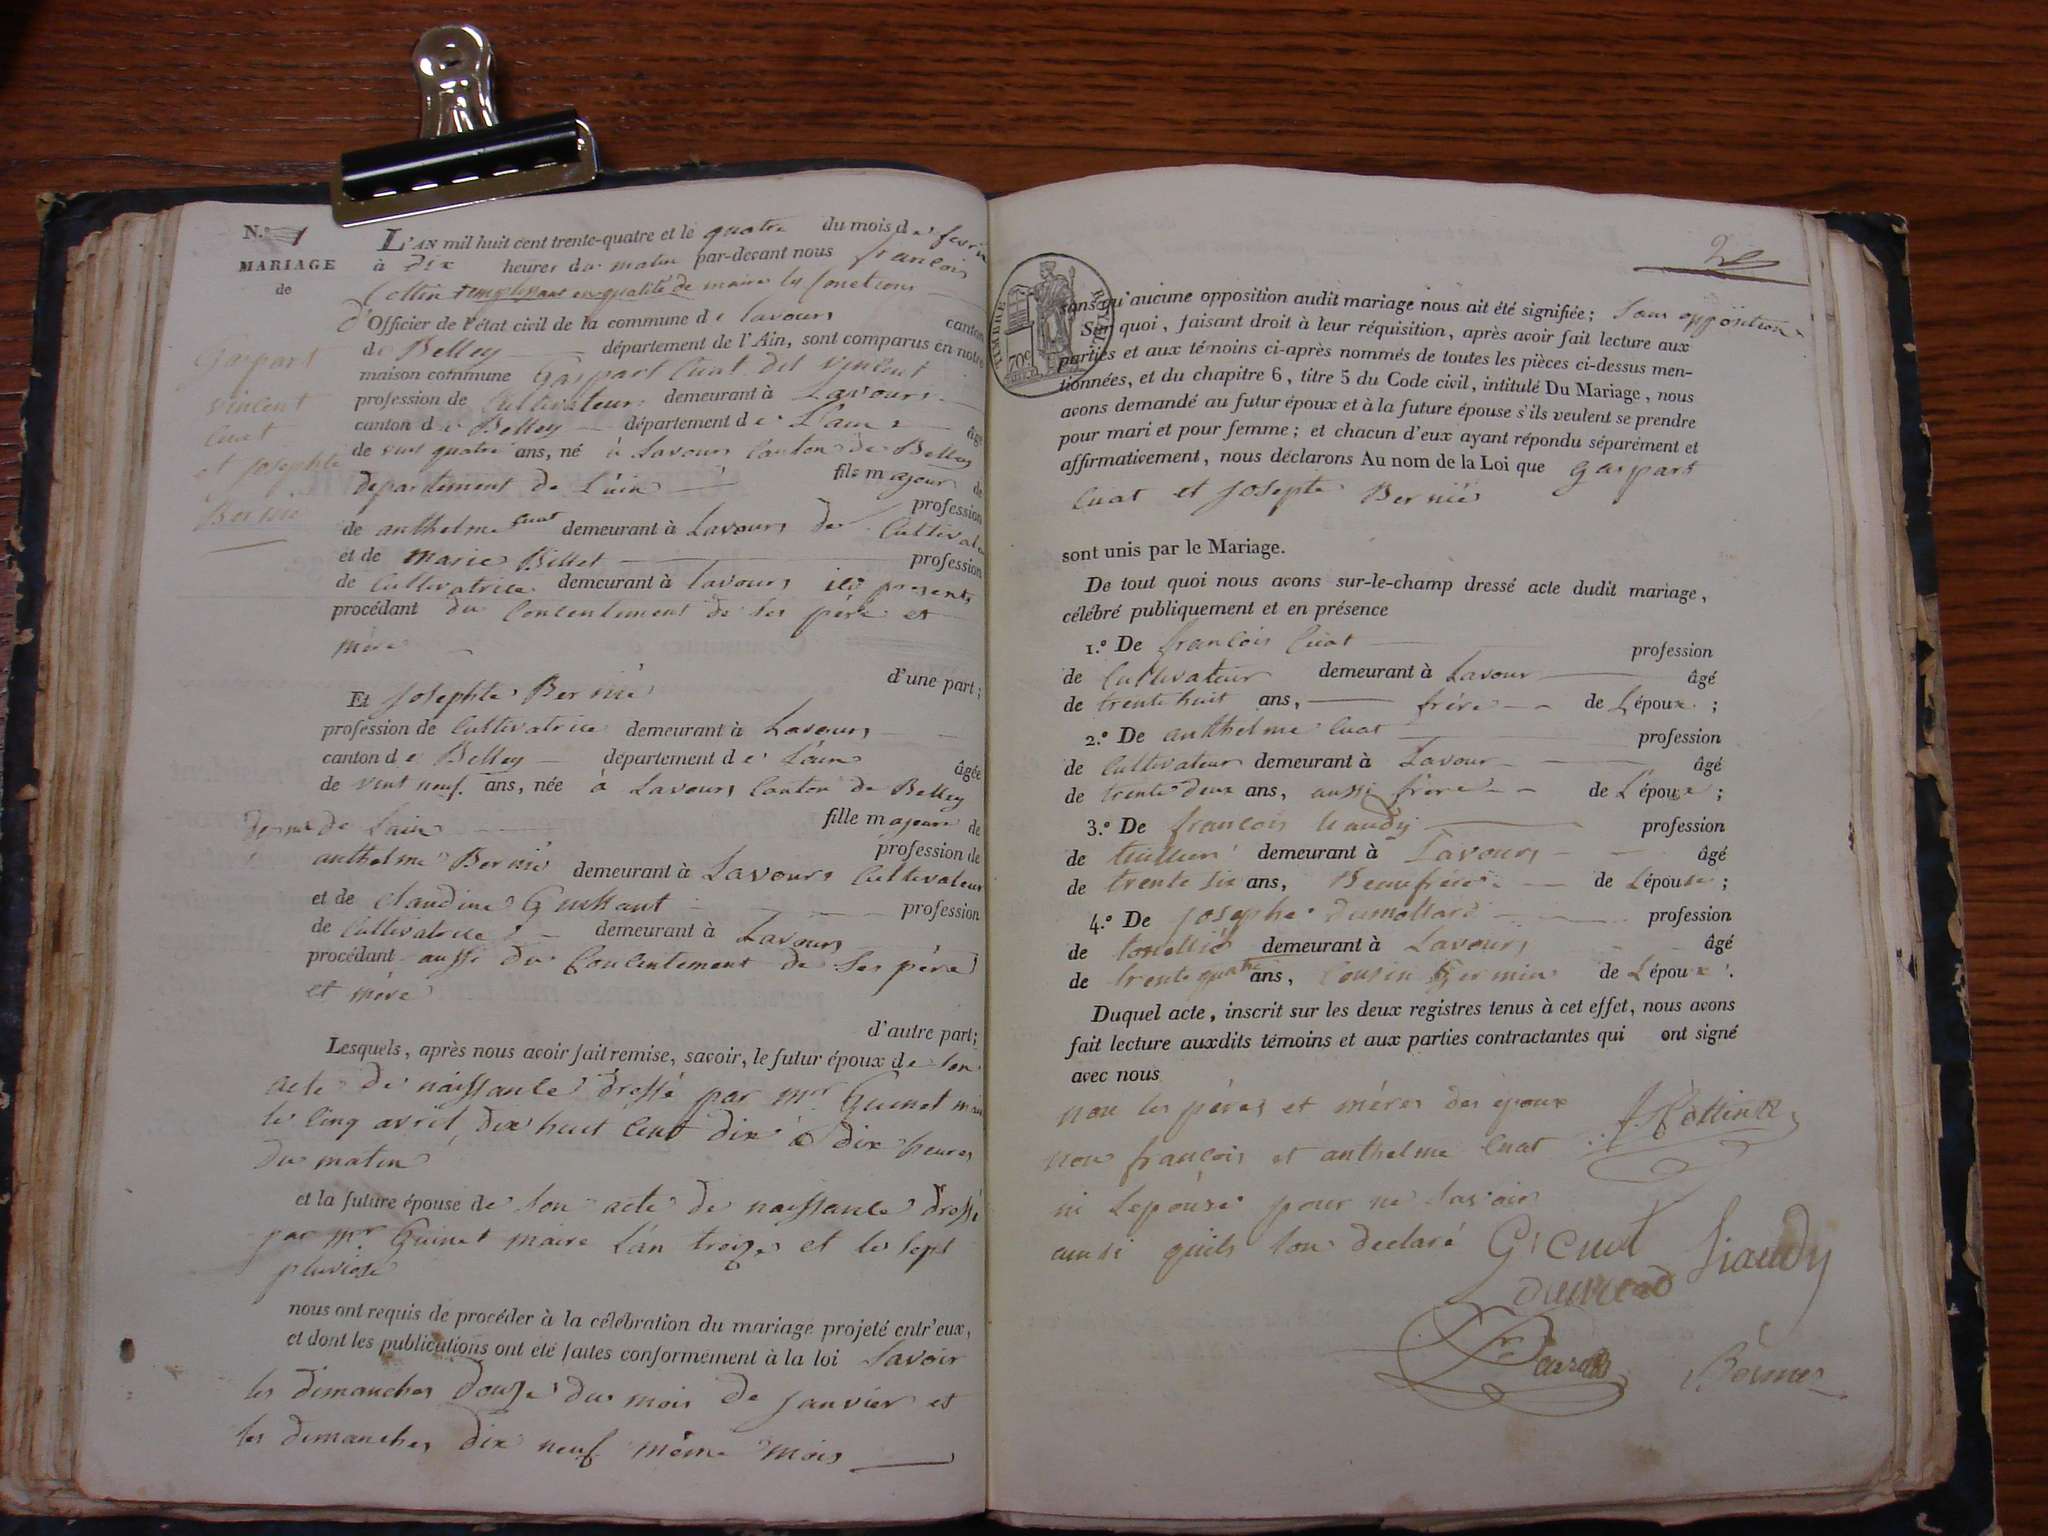 N.º
MARIAGE
de
Gaspart
vincent
Cuat
et Josephte
Bernié
L'AN mil huit cent trente-quatre et le quatre du mois de fevrier
à Dix heures du matin par-devant nous françois
Cottin remplissant en qualité de maire les fonctions
d'Officier de l'état civil de la commune de Lavours canton
de Belley département de l'Ain, sont comparus en notre
maison commune Gaspart Cuat dit vincent
profession de Cultivateur demeurant à Lavours
canton de Belley département de L'ain âgé
de vint quatre ans, né à Lavours Canton de Belley
departement de L'ain fils majeur de
profession
de anthelme Cuat demeurant à Lavours de Cultivateur
et de marie Billet profession
de Cultivatrice demeurant à Lavours ici presents
procédant du Concentement de ses père et
mère
d'une part;
Et Josephte Bernié
profession de Cultivatrice demeurant à Lavours
canton de Belley département de L'ain âgée
de vint neuf ans, née à Lavours Canton de Belley
de L'ain fille majeure de
profession de
anthelme Bernié demeurant à Lavours Cultivateur
et de Claudine profession
de Cultivatrice demeurant à Lavours
procédant aussi du Concentement de ses père
et mère
d'autre part;
Lesquels, après nous avoir fait remise, savoir, le futur époux de son
acte de naissance dressé par mr Guinet maire
le cinq avril dix huit cent dix à dix heures
du matin
et la future épouse de son acte de naissance dressé
par mr Guinet maire L'an treize et le sept
pluviose
nous ont requis de procéder à la célébration du mariage projeté entr'eux,
et dont les publications ont été faites conformément à la loi Savoir
les dimanches douze du mois de Janvier et
les dimanches dix neuf même mois
sans qu'aucune opposition audit mariage nous ait été signifiée; Sans opposition
TIMBRE ROYAL
70c
Sur quoi, faisant droit à leur réquisition, après avoir fait lecture aux
parties et aux témoins ci-après nommés de toutes les pièces ci-dessus men-
tionnées, et du chapitre 6, titre 5 du Code civil, intitulé Du Mariage, nous
avons demandé au futur époux et à la future épouse s'ils veulent se prendre
pour mari et pour femme; et chacun d'eux ayant répondu séparément et
affirmativement, nous déclarons Au nom de la Loi que Gaspart
Cuat et Josepte Bernié
sont unis par le Mariage.
De tout quoi nous avons sur-le-champ dressé acte dudit mariage,
célébré publiquement et en présence
1.º De françois Cuat profession
de Cultivateur demeurant à Lavour âgé
de trente huit ans, frère de L'époux;
2.º De anthelme Cuat profession
de Cultivateur demeurant à Lavour âgé
de trente deux ans, aussi frère de L'époux;
3.º De françois profession
de demeurant à Lavours âgé
de trente six ans, Beaufrère de L'épouse;
4.º De Josephe dumollard profession
de tonellié demeurant à Lavours âgé
de trente quatre ans, Cousin Germin de L'époux.
Duquel acte, inscrit sur les deux registres tenus à cet effet, nous avons
fait lecture auxdits témoins et aux parties contractantes qui ont signé
avec nous
non les péres et méres des époux
non françois et anthelme Cuat
ni Lepouse pour ne savoir
ainsi quils lon déclaré
G Cuat